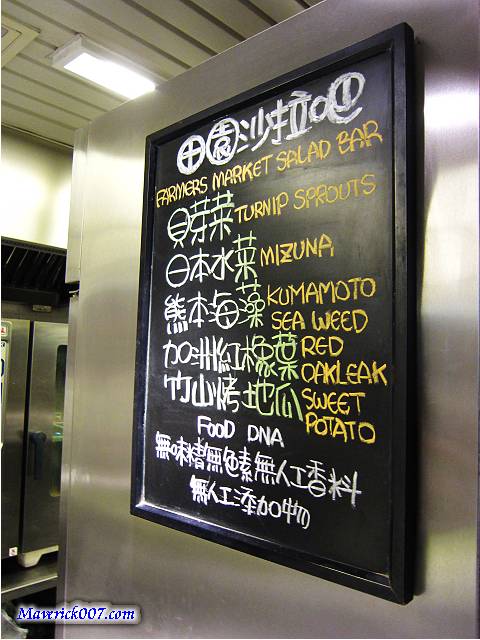 田園沙拉吧
FARMERS MARKET SALAD BAR
貝芽菜 TURNIP SPROUTS
日本水菜 MIZUNA
熊本海藻 KUMAMOTO
SEA WEED
加洲紅橡葉 RED
OAKLEAK
竹山烤地瓜 SWEET
POTATO
FOOD DNA
無味精無色素無人工香料
無人工添加物
Maverick007.com